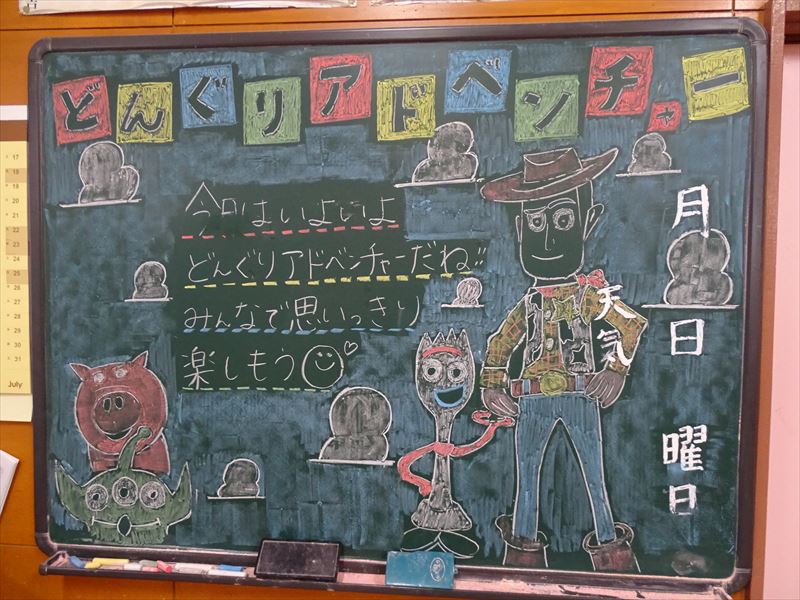 どんぐりアドベンチャー
今日はいよいよ
どんぐりアドベンチャーだね!!
みんなで思いっきり
楽しもう
月
日
曜日
天気
17
18
19
20
21
22
23
24
25
26
27
28
29
30
31
July